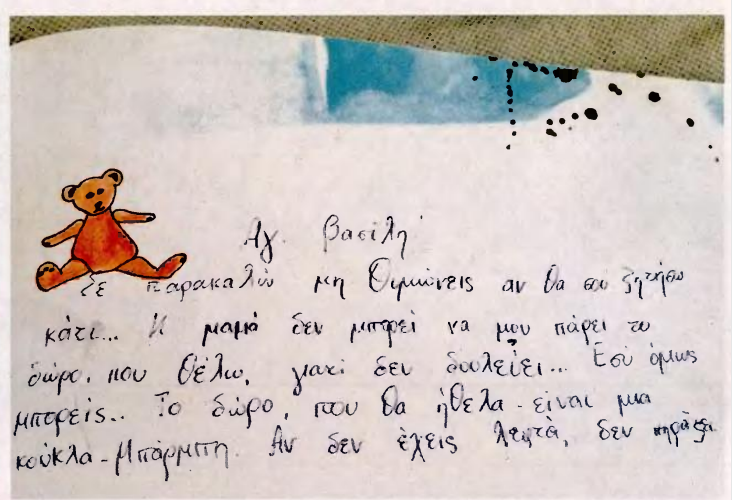 Αγ. Βασίλη
Σε παρακαλώ μη θυμώνεις αν θα σου ζητήσω
κάτι... Η μαμά δεν μπορεί να μου πάρει το
δώρο, που θέλω, γιατί δεν δουλεύει... Εσύ όμως
μπορείς.. Το δώρο, που θα ήθελα - είναι μια
κούκλα - Μπάρμπη. Αν δεν έχεις λεφτά, δεν πηράζει